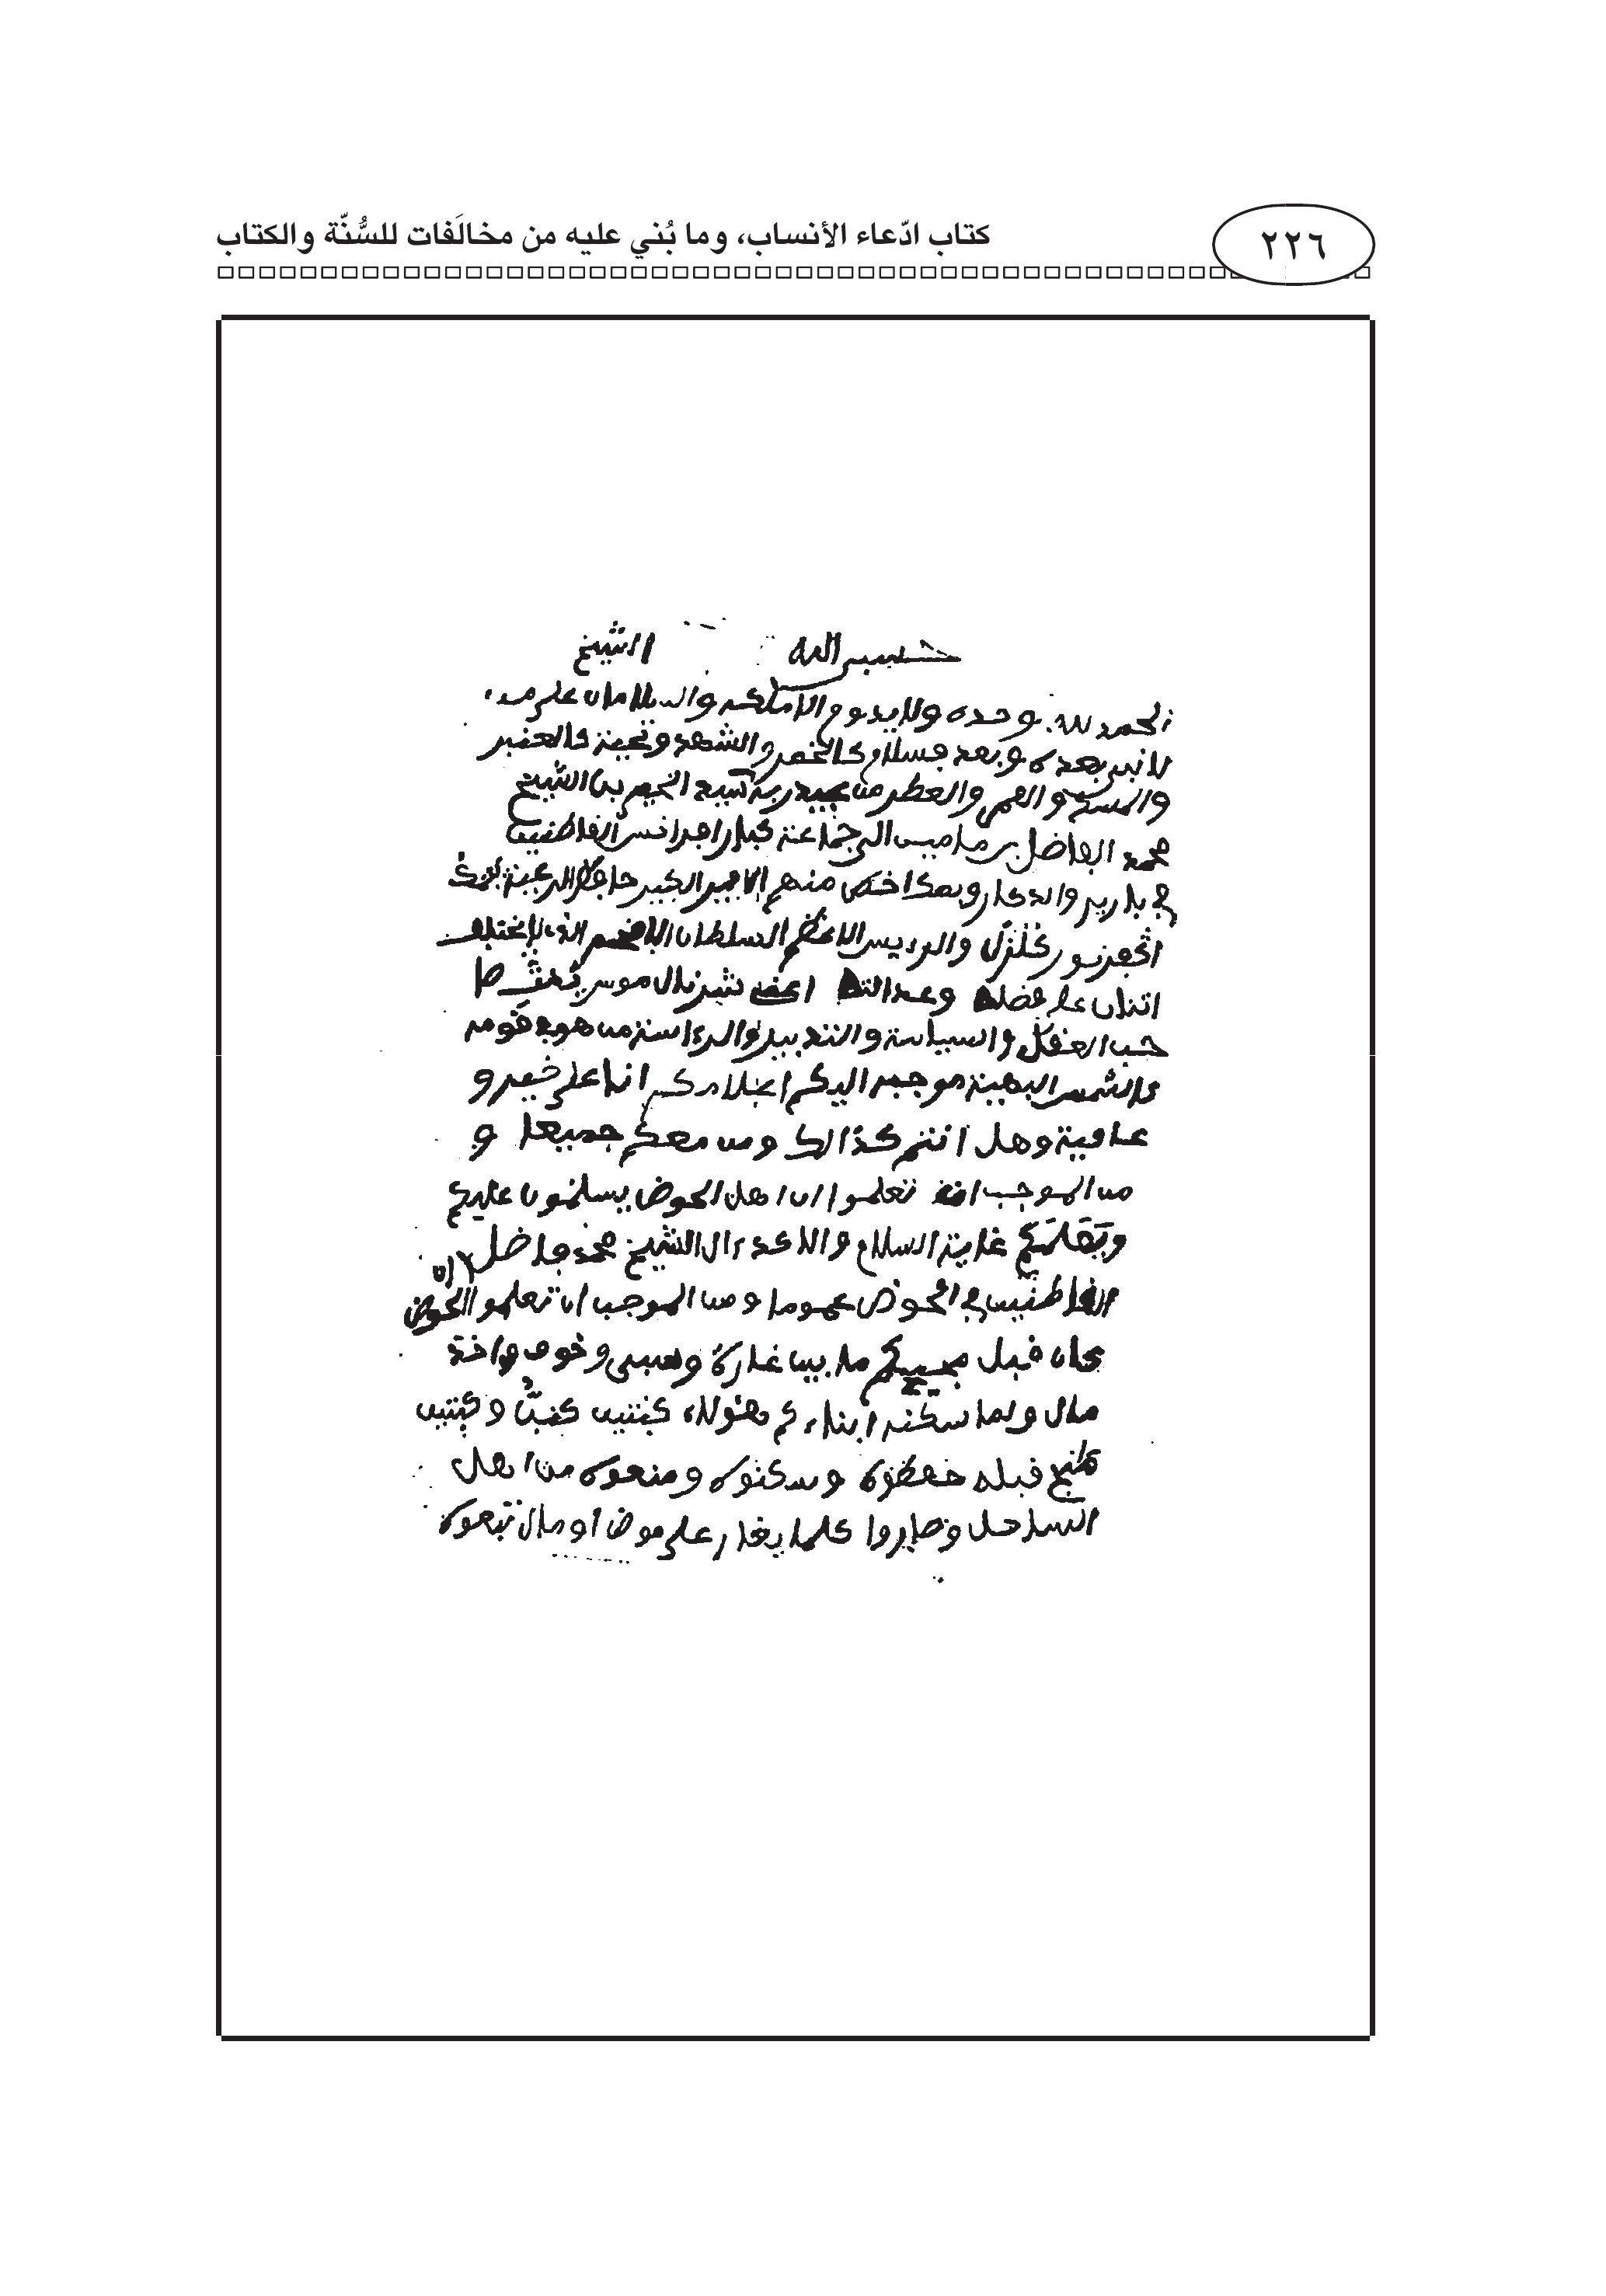 ٢٢٦
كتاب ادّعاء الأنساب، وما بُني عليه من مخالَفات للسُّنّة والكتاب
حسبي الله الشيخ
الحمد لله وحده ولا يدوم إلا ملكه والسلامان على من
لا نبي بعده وبعد فسلام كالخمر والشهد وتحية كالعنبر
والمسك والقمر والعطر من عبيد ربه سيد الخير بن الشيخ
محمد الفاضل بن مامين الى جماعة كبار افرانس القاطنين
في باريز والدكار وبعد اخص منهم الامير الكبير حافظ الرعية
كلنزل والرييس الاعظم السلطان الافخم الذي لا يختلف
اثنان على فضله وعدالته اعني شيزنرال موسي
حب العقل والسياسة والتدبير والرءاسة من هو في قومه
كالشمس البهية موجبه اليكم اعلامكم اننا على خير و
عافية وهل انتم كذالك ومن معكم جميعا و
من الموجب انه تعلموا ان اهل الحوض يسلمون عليكم
غاية السلام والاكد ءال الشيخ محمد فاضل
القاطنين في الحوض عموما ومن الموجب ان تعلموا الحوض
كان قبل مجييكم ما بين غارة وسبي وخوف واخذ
مال ولما سكنه ابناءكم هئولاء كبتين وكبتين
قبله حفظوه وسكنوه ومنعوه من اهل
الساحل وصاروا كلما يغار على موضع او مال تبعوه